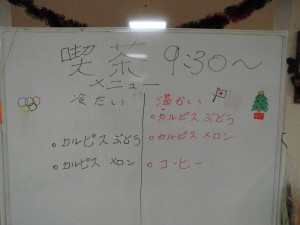 喫茶 9:30～
メニュー
冷たい 温かい
○カルピスぶどう
○カルピスぶどう ○カルピス メロン
○カルピス メロン ○コーヒー